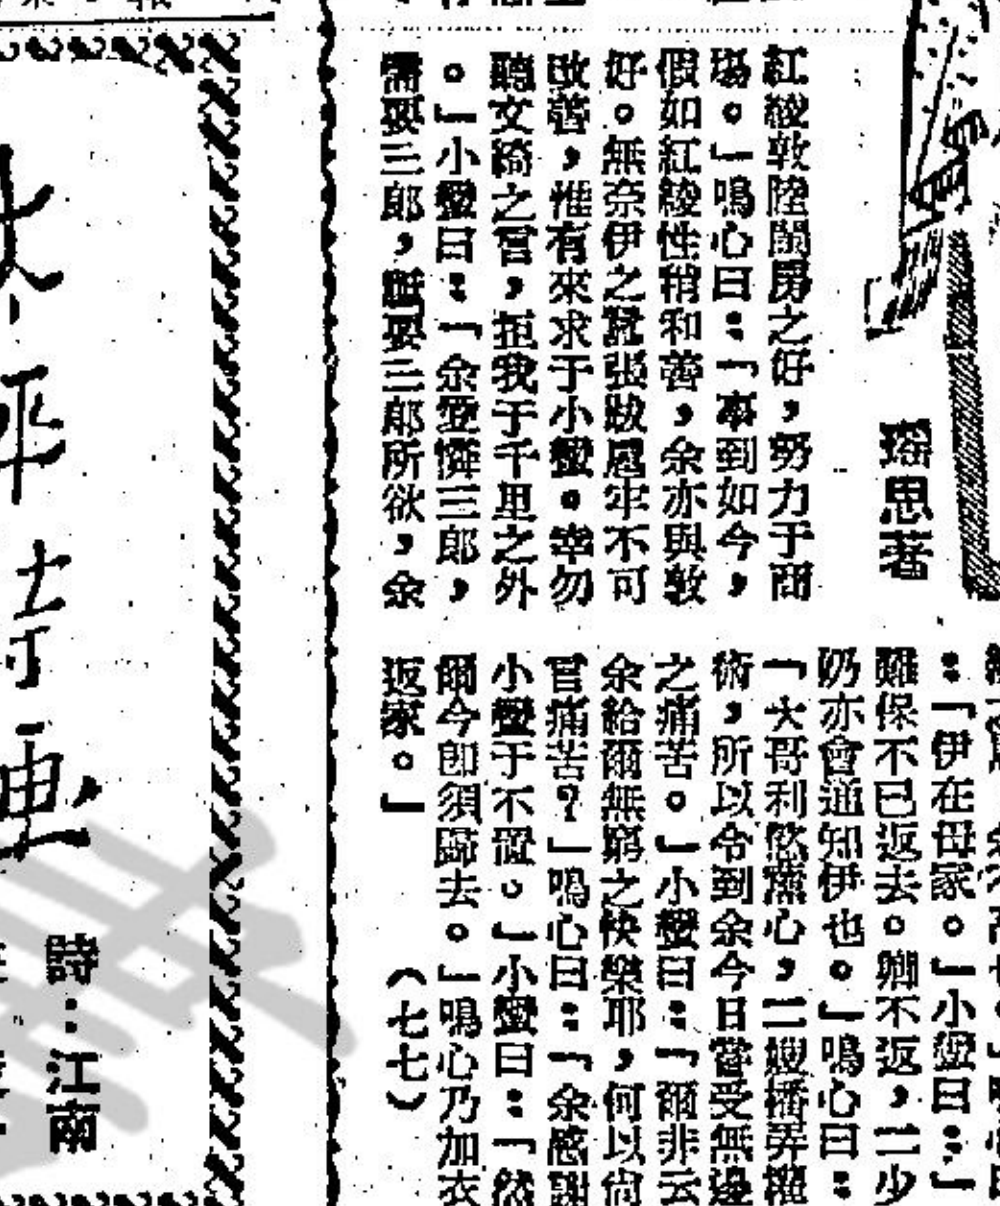 瑶思著
紅綾敦陸閨房之好，努力于商
場。」鳴心曰：「事到如今，
假如紅綾性稍和善，余亦與敦
好。無奈伊之囂張跋扈牢不可
改善，惟有來求于小蠻。幸勿
聽文綺之言，拒我于千里之外
。」小蠻曰：「余愛憐三郎，
需要三郎，誕要三郎所欲，余
：「伊在母家。」小蠻曰：「
難保不已返去。卿不返，二少
奶亦會通知伊也。」鳴心曰：
「大哥利慾薰心，二嫂播弄權
術，所以令到余今日當受無邊
之痛苦。」小蠻曰：「爾非云
余給爾無窮之快樂耶，何以尙
言痛苦？」鳴心曰：「余感謝
小蠻于不置。」小蠻曰：「然
爾今卽須歸去。」鳴心乃加衣
返家。」　（七七）
詩：江南